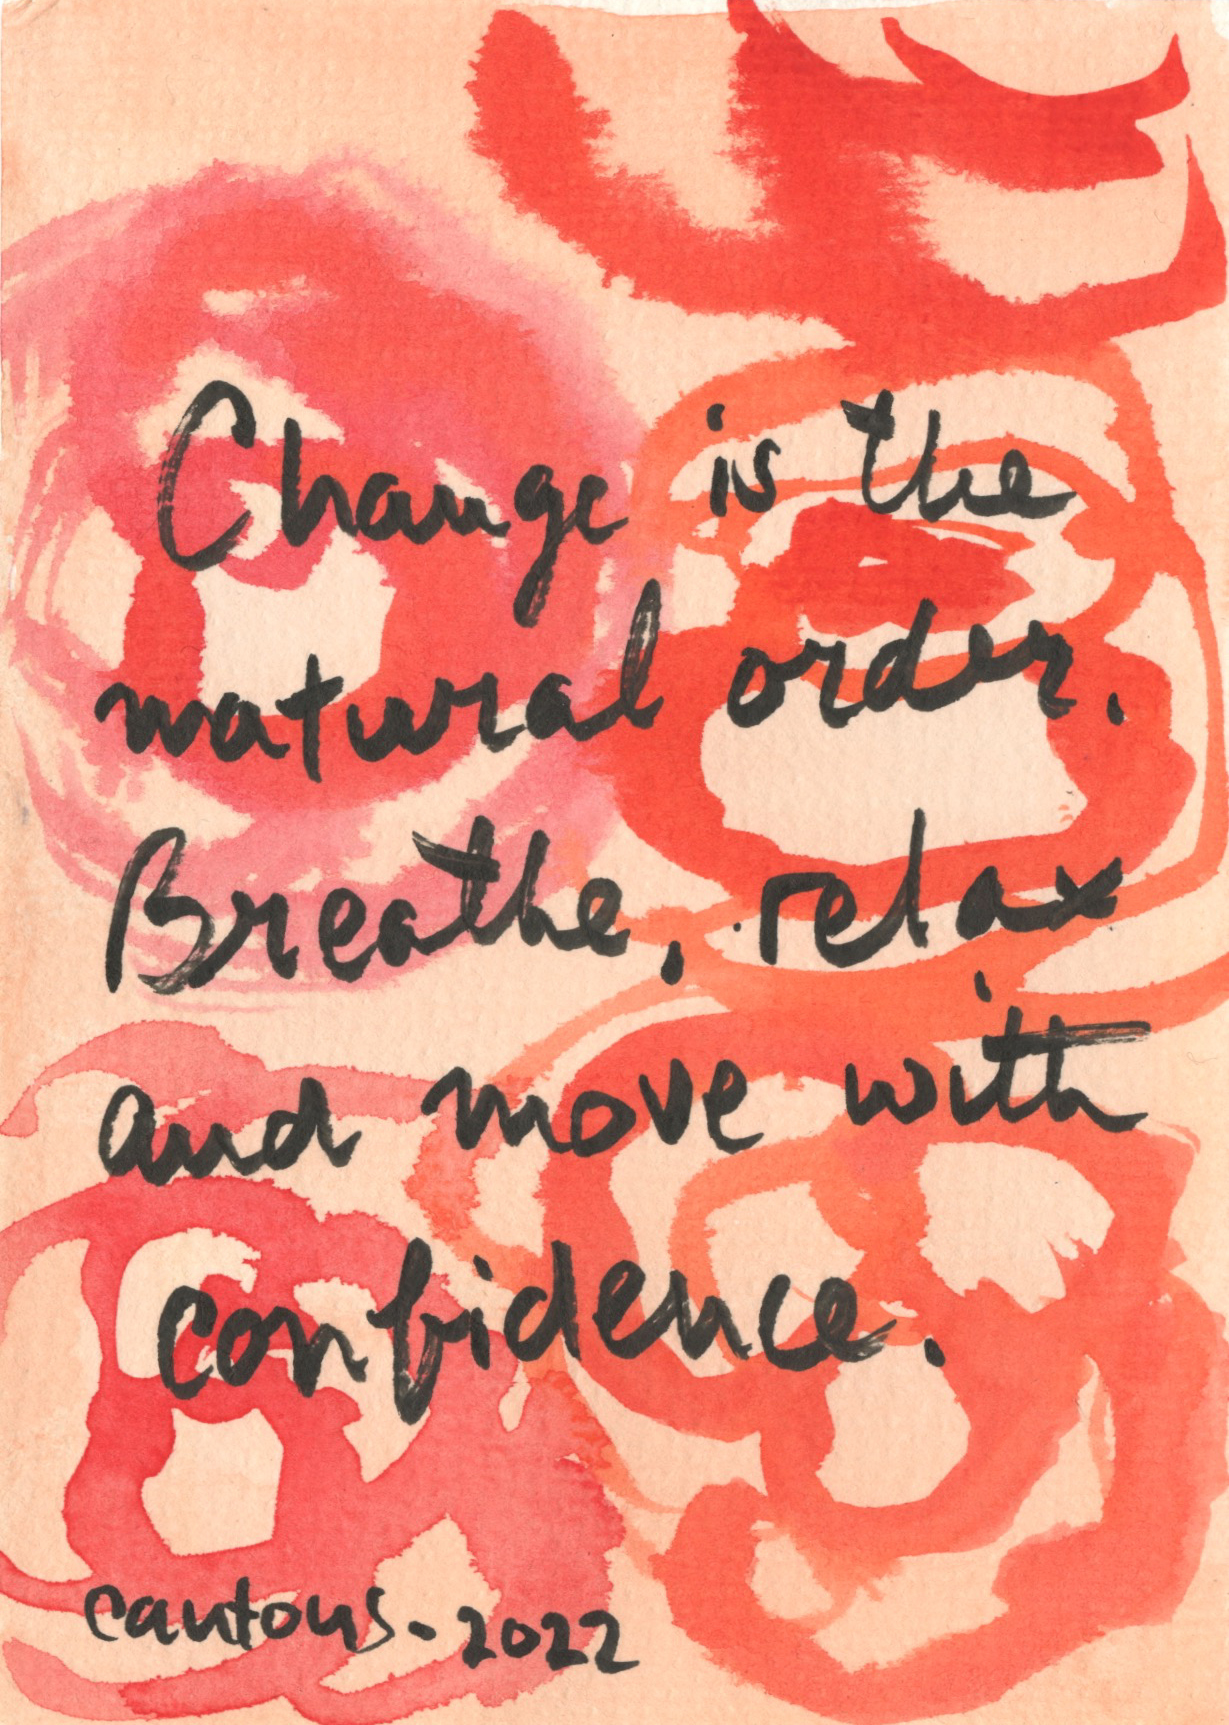 Change is the
natural order.
Breathe, relax
and move with
confidence.
cautous. 2022